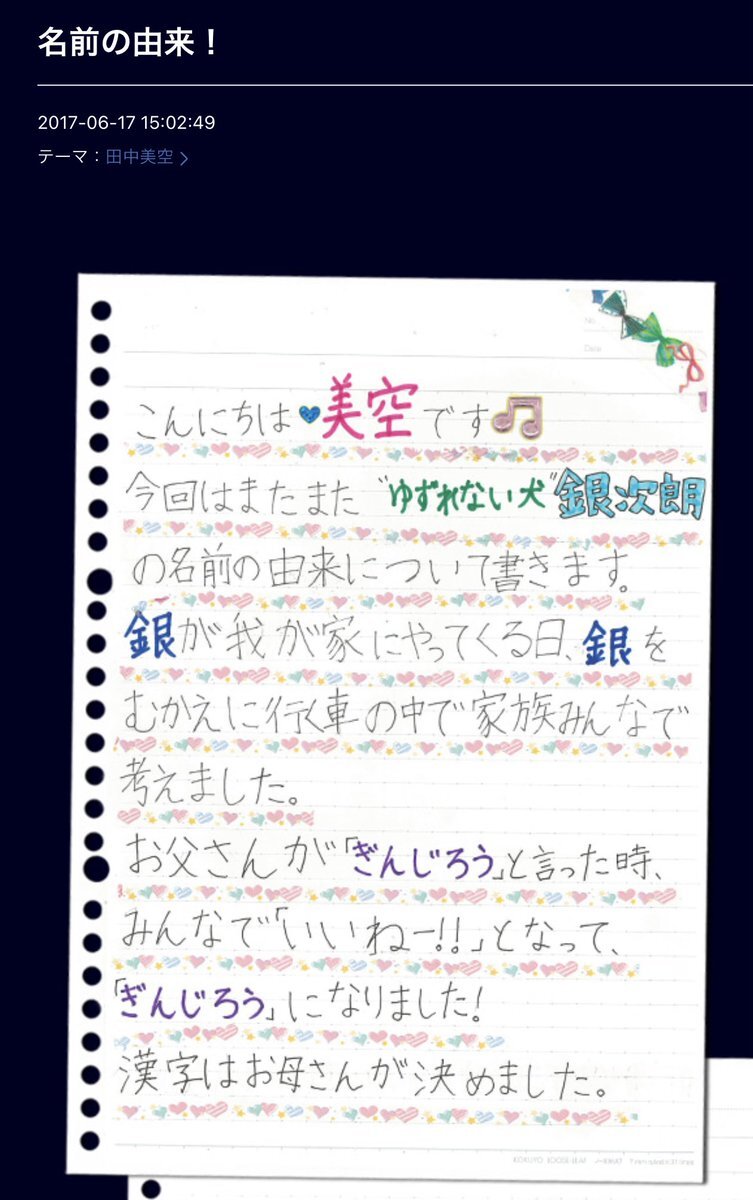 名前の由来！
2017-06-17 15:02:49
テーマ：田中美空 >
No.
Date
こんにちは♥美空です♫
今回はまたまた“ゆずれない犬”銀次朗
の名前の由来について書きます。
銀が我が家にやってくる日、銀を
むかえに行く車の中で家族みんなで
考えました。
お父さんが「ぎんじろう」と言った時、
みんなで「いいねー!!」となって、
「ぎんじろう」になりました!
漢字はお母さんが決めました。
KOKUYO LOOSE-LEAF